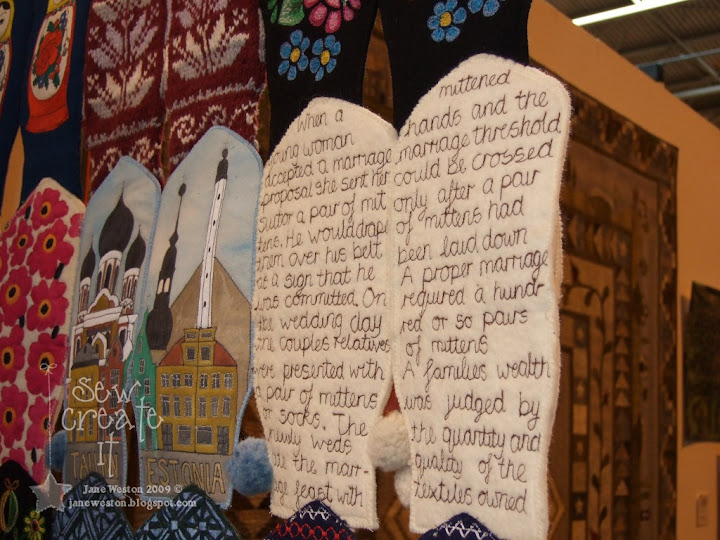 When a
young woman
accepted a marriage
proposal she sent her
suitor a pair of mit
tens. He would drape
them over his belt
as a sign that he
was committed. On
the wedding day
the couples relatives
were presented with
a pair of mittens
or socks. The
newly weds
ate the mar-
riage feast with
mittened
hands and the
marriage threshold
could be crossed
only after a pair
of mittens had
been laid down
A proper marriage
required a hund
red or so pairs
of mittens
A families wealth
was judged by
the quantity and
quality of the
textiles owned
TALLINN
ESTONIA
sew
create
it
Jane Weston 2009 ©
janeweston.blogspot.com